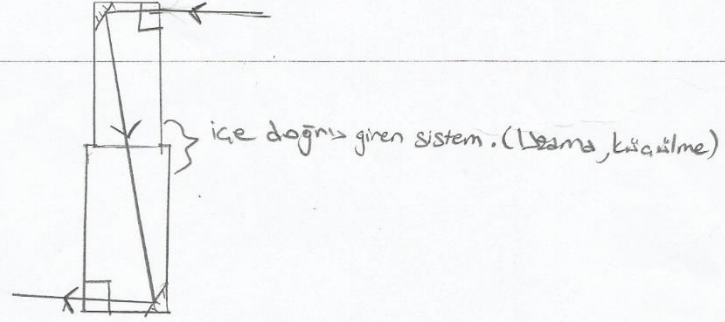 içe doğru giren sistem. (Uzama, küçülme)